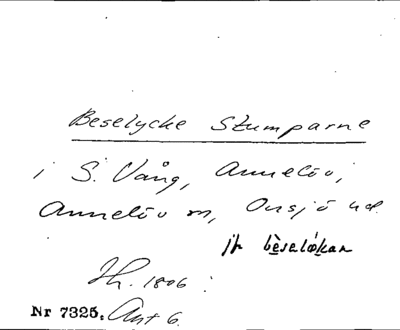 Beselycke Stumparne
i S. Vång, Annelöv,
Annelöv sn, Onsjö hd.
jfr bèseløkan
Jh. 1806:
Nr 7325. Akt 6.